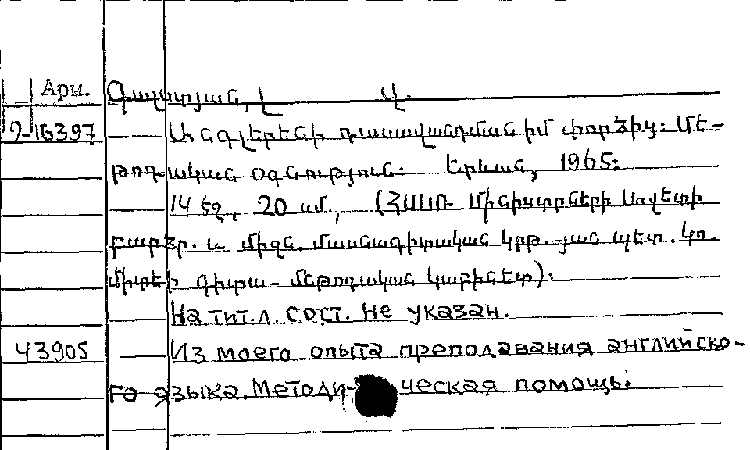 Арм. Գալստյան, Լ Վ.
9-16397 Անգլերենի դասավանդման իմ փորձից: Մե-
թոդական օգնություն: Երևան, 1965:
14 էջ, 20 սմ, (ՀՍՍՌ Մինիստրների Սովետի
բարձր. և միջն. մասնագիտական կրթ.-յան պետ. կո
միտեի գիտա-մեթոդական կաբինետ):
На тит.л. сост. не указан.
43905 Из моего опыта преподавания английско-
го языка. Методи- ческая помощь.